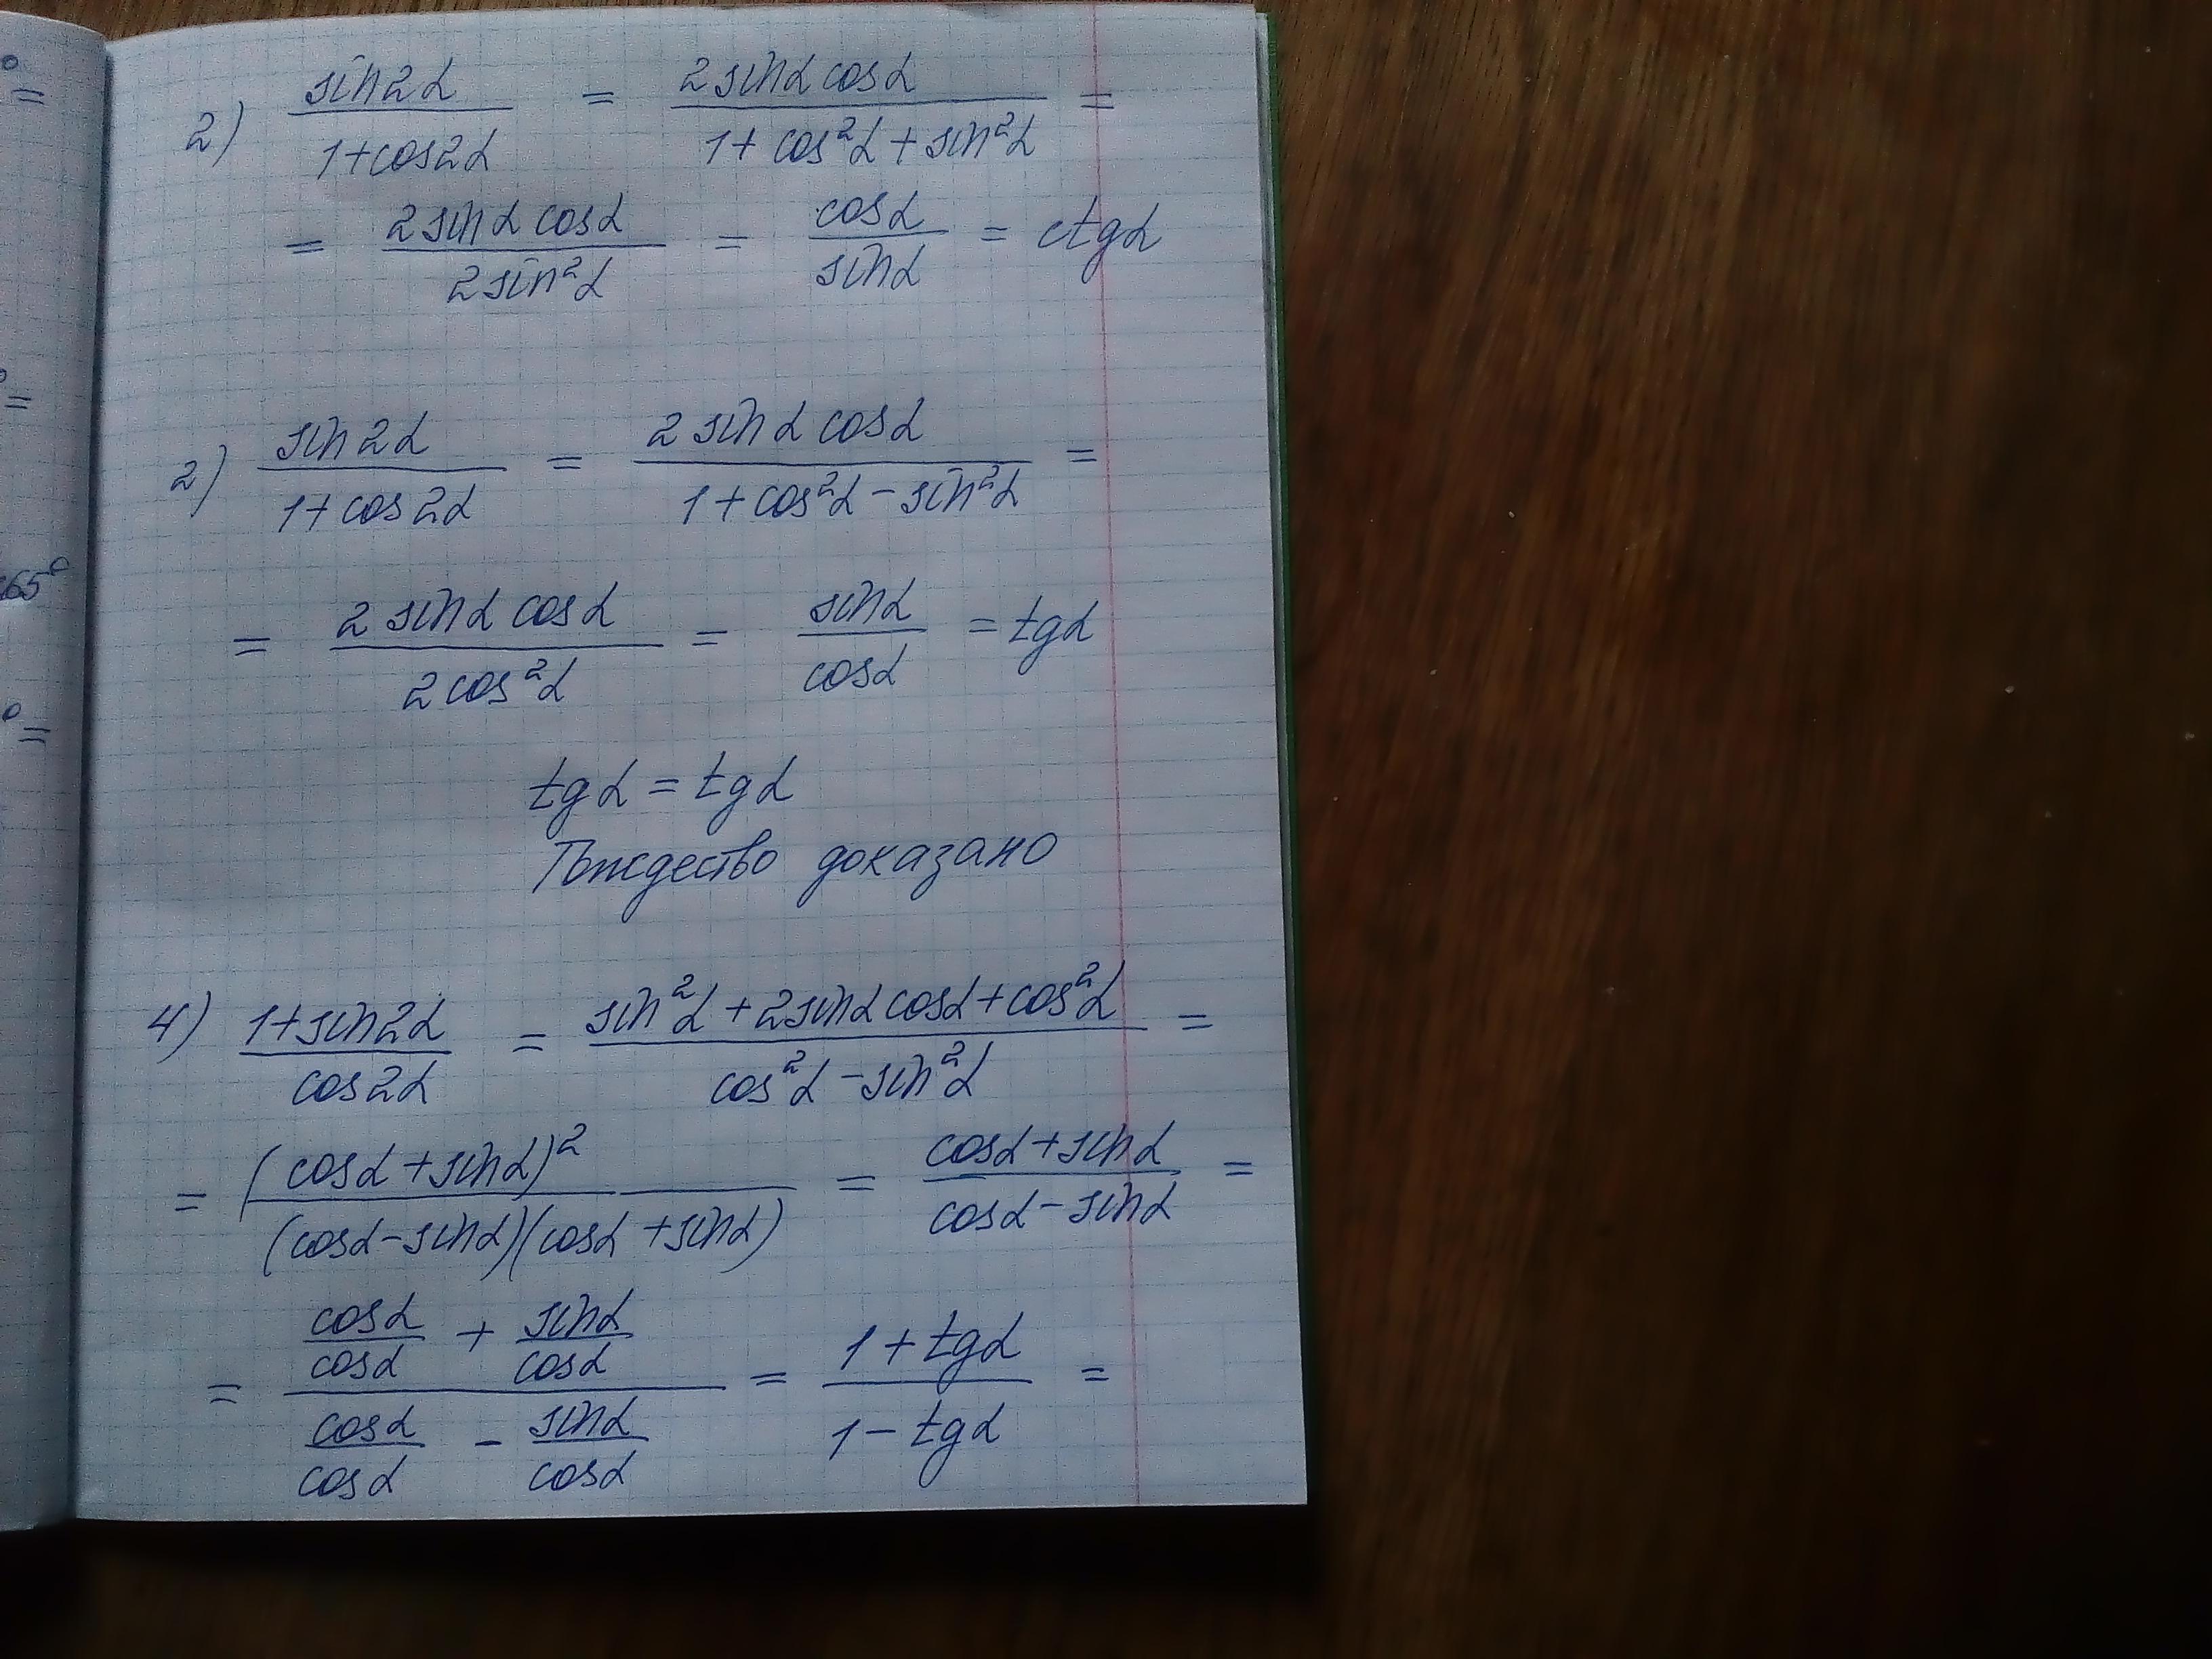 2) sin2α / 1+cos2α = 2sinα cosα / 1+cos²α+sin²α =
= 2sinα cosα / 2sin²α = cosα / sinα = ctgα
2) sin2α / 1+cos2α = 2sinα cosα / 1+cos²α−sin²α =
= 2sinα cosα / 2cos²α = sinα / cosα = tgα
tgα = tgα
Тождество доказано
4) 1+sin2α / cos2α = sin²α+2sinα cosα+cos²α / cos²α−sin²α =
= (cosα+sinα)² / (cosα−sinα)(cosα+sinα) = cosα+sinα / cosα−sinα =
= cosα/cosα + sinα/cosα / cosα/cosα − sinα/cosα = 1+tgα / 1−tgα =
° =
° =
65°
° =